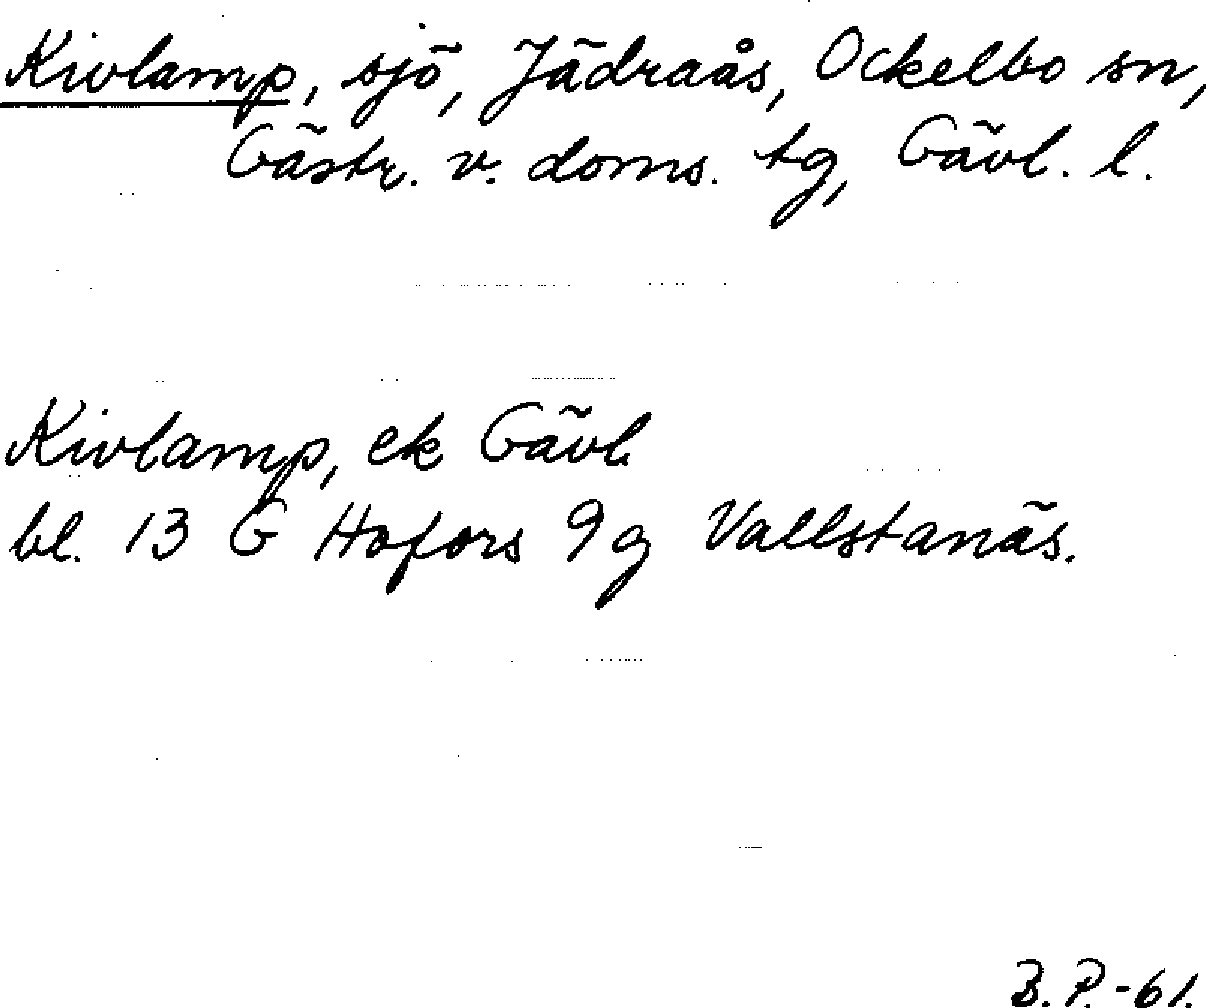 Kivlamp, sjö, Jädraås, Ockelbo sn,
Gästr. v. doms. tg, Gävl. l.
Kivlamp, ek Gävl.
bl. 13 G Hofors 9g Vallstanäs.
B. P. -61.